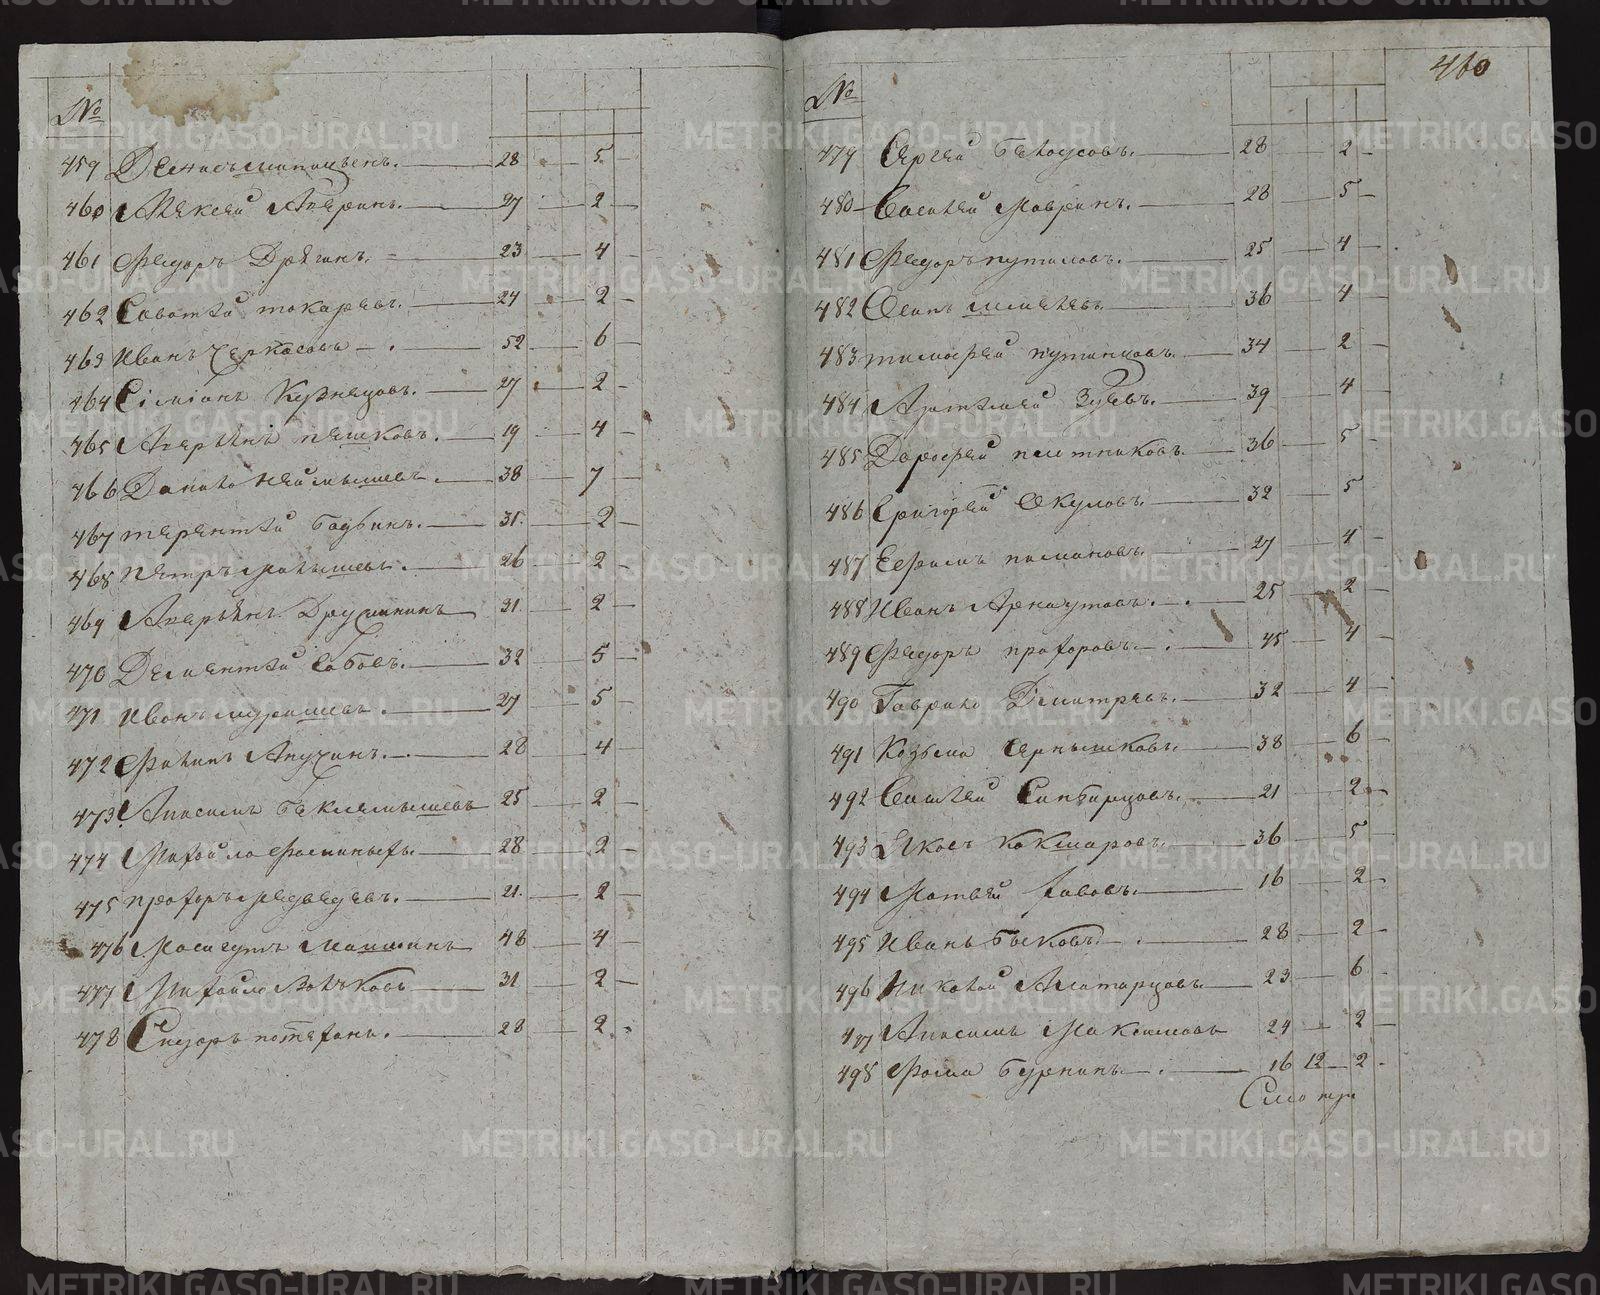 №
459 Денисъ 28 5
460 Алексей Аверинъ. 27 2
461 Федоръ Дрягинъ. 23 4
462 Саватей токаревъ. 24 2
463 Иванъ Черкасовъ 52 6
464 Симіонъ Кузнецовъ. 27 2
465 Аверьянъ пешковъ. 19 4
466 Данило Неймышевъ. 38 7
467 терентей бабинъ. 31. 2
468 петръ малышевъ. 26 2
469 Аверьянъ Дружининъ 31 2
470 Дементей бабовъ. 32 5
471 Иванъ 27 5
472 Филипъ Анучинъ. 28 4
473 Анисимъ беклемышевъ 25 2
474 Михайло Фоминыхъ. 28 2
475 прохоръ медведевъ. 21. 2
476 48 4
477 Михайло Волковъ 31 2
478 Сидоръ потехинъ. 28 2
460
№
479 Сергей белоусовъ. 28 2
480 Василей Мавринъ. 28 5
481 Федоръ путиловъ. 25 4
482 Осипъ шмелевъ. 36 4
483 тимофей путинцовъ. 34 2
484 Артемей Зуевъ. 39 4
485 Дорофей плотниковъ. 36 5
486 Григорей Окуловъ. 32 5
487 Ефимъ 27 4
488 Иванъ Арнаутовъ. 25 2
489 Федоръ прохоровъ. 45 4
490 Гаврило Дмитревъ. 32 4
491 Козьма Чернышковъ. 38 6
492 Василей Синбирцовъ. 21 2
493 Яковъ Кокшаровъ. 36 5
494 Матвей 16 2
495 Иванъ быковъ. 28 2
496 Николай Алатарцовъ. 23 6
497 Анисимъ Максимовъ 24 2
498 Фома бурнинъ. 16 12 2
Смотри
METRIKI.GASO-URAL.RU